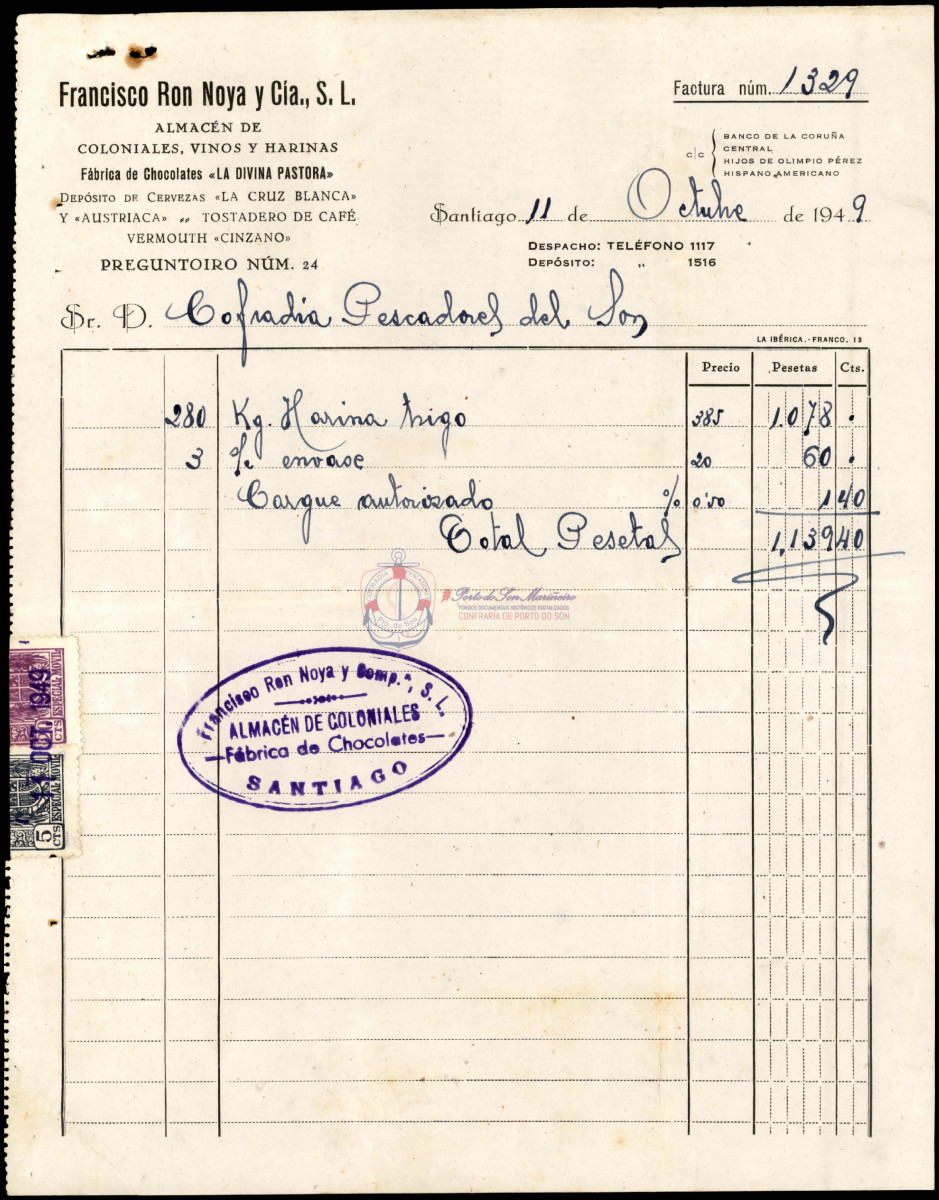 Francisco Ron Noya y Cía., S. L.
ALMACÉN DE
COLONIALES, VINOS Y HARINAS
Fábrica de Chocolates «LA DIVINA PASTORA»
DEPÓSITO DE CERVEZAS «LA CRUZ BLANCA»
Y «AUSTRIACA» „ TOSTADERO DE CAFÉ
VERMOUTH «CINZANO»
PREGUNTOIRO NÚM. 24
Factura núm. 1329
c/c
BANCO DE LA CORUÑA
CENTRAL
HIJOS DE OLIMPIO PÉREZ
HISPANO AMERICANO
Santiago 11 de Octubre de 1949
DESPACHO: TELÉFONO 1117
DEPÓSITO: „ 1516
Sr. D. Cofradia Pescadores del Son
LA IBÉRICA.-FRANCO, 13
Precio Pesetas Cts.
280 Kg. Harina trigo 385 1.078 .
3 s/c envase 20 60 .
Cargue autorizado % 0'50 1 40
Total Pesetas 1,139 40
CONFRADÍA PESCADORES
Pto. do Son
Porto do Son Mariñeiro
FONDOS DOCUMENTAIS HISTÓRICOS DIXITALIZADOS
CONFRARIA DE PORTO DO SON
Francisco Ron Noya y Comp.ª, S. L.
ALMACÉN DE COLONIALES
—Fábrica de Chocolates—
SANTIAGO
11 OCT 1949
CTS ESPECIAL MOVIL
5 CTS ESPECIAL MOVIL